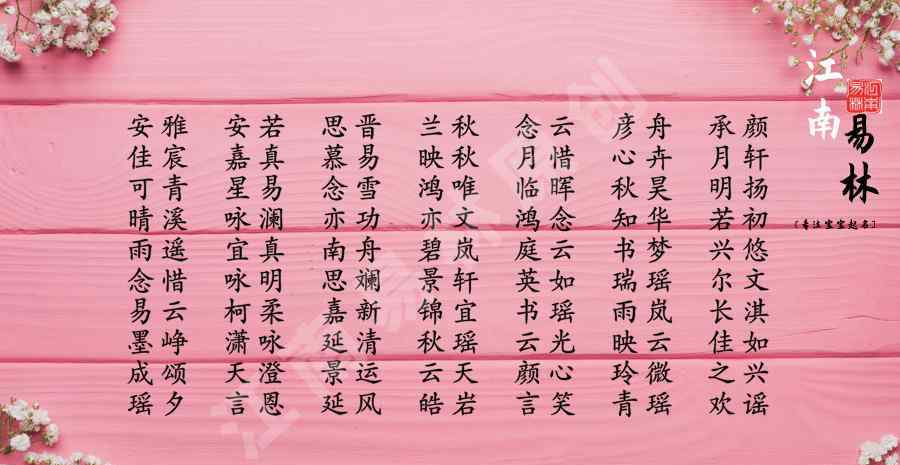 安雅 安若 思晋 兰秋 念云 彦舟 承颜
佳宸 嘉真 慕易 映秋 月惜 心卉 月轩
可青 星易 念雪 鸿唯 临晖 秋昊 明扬
晴溪 咏澜 亦功 亦文 鸿念 知华 若初
雨遥 宜真 南舟 碧岚 庭云 书梦 兴悠
念惜 咏明 思斓 景轩 英如 瑞瑶 尔文
易云 柯柔 嘉新 锦宜 书瑶 雨岚 长淇
墨峥 潇咏 延清 秋瑶 云光 映云 佳如
成颂 天澄 景运 云天 颜心 玲微 之兴
瑶夕 言恩 延风 皓岩 言笑 青瑶 欢谣
江南
易林
江南易林
〔专注宝宝起名〕
江南易林原创